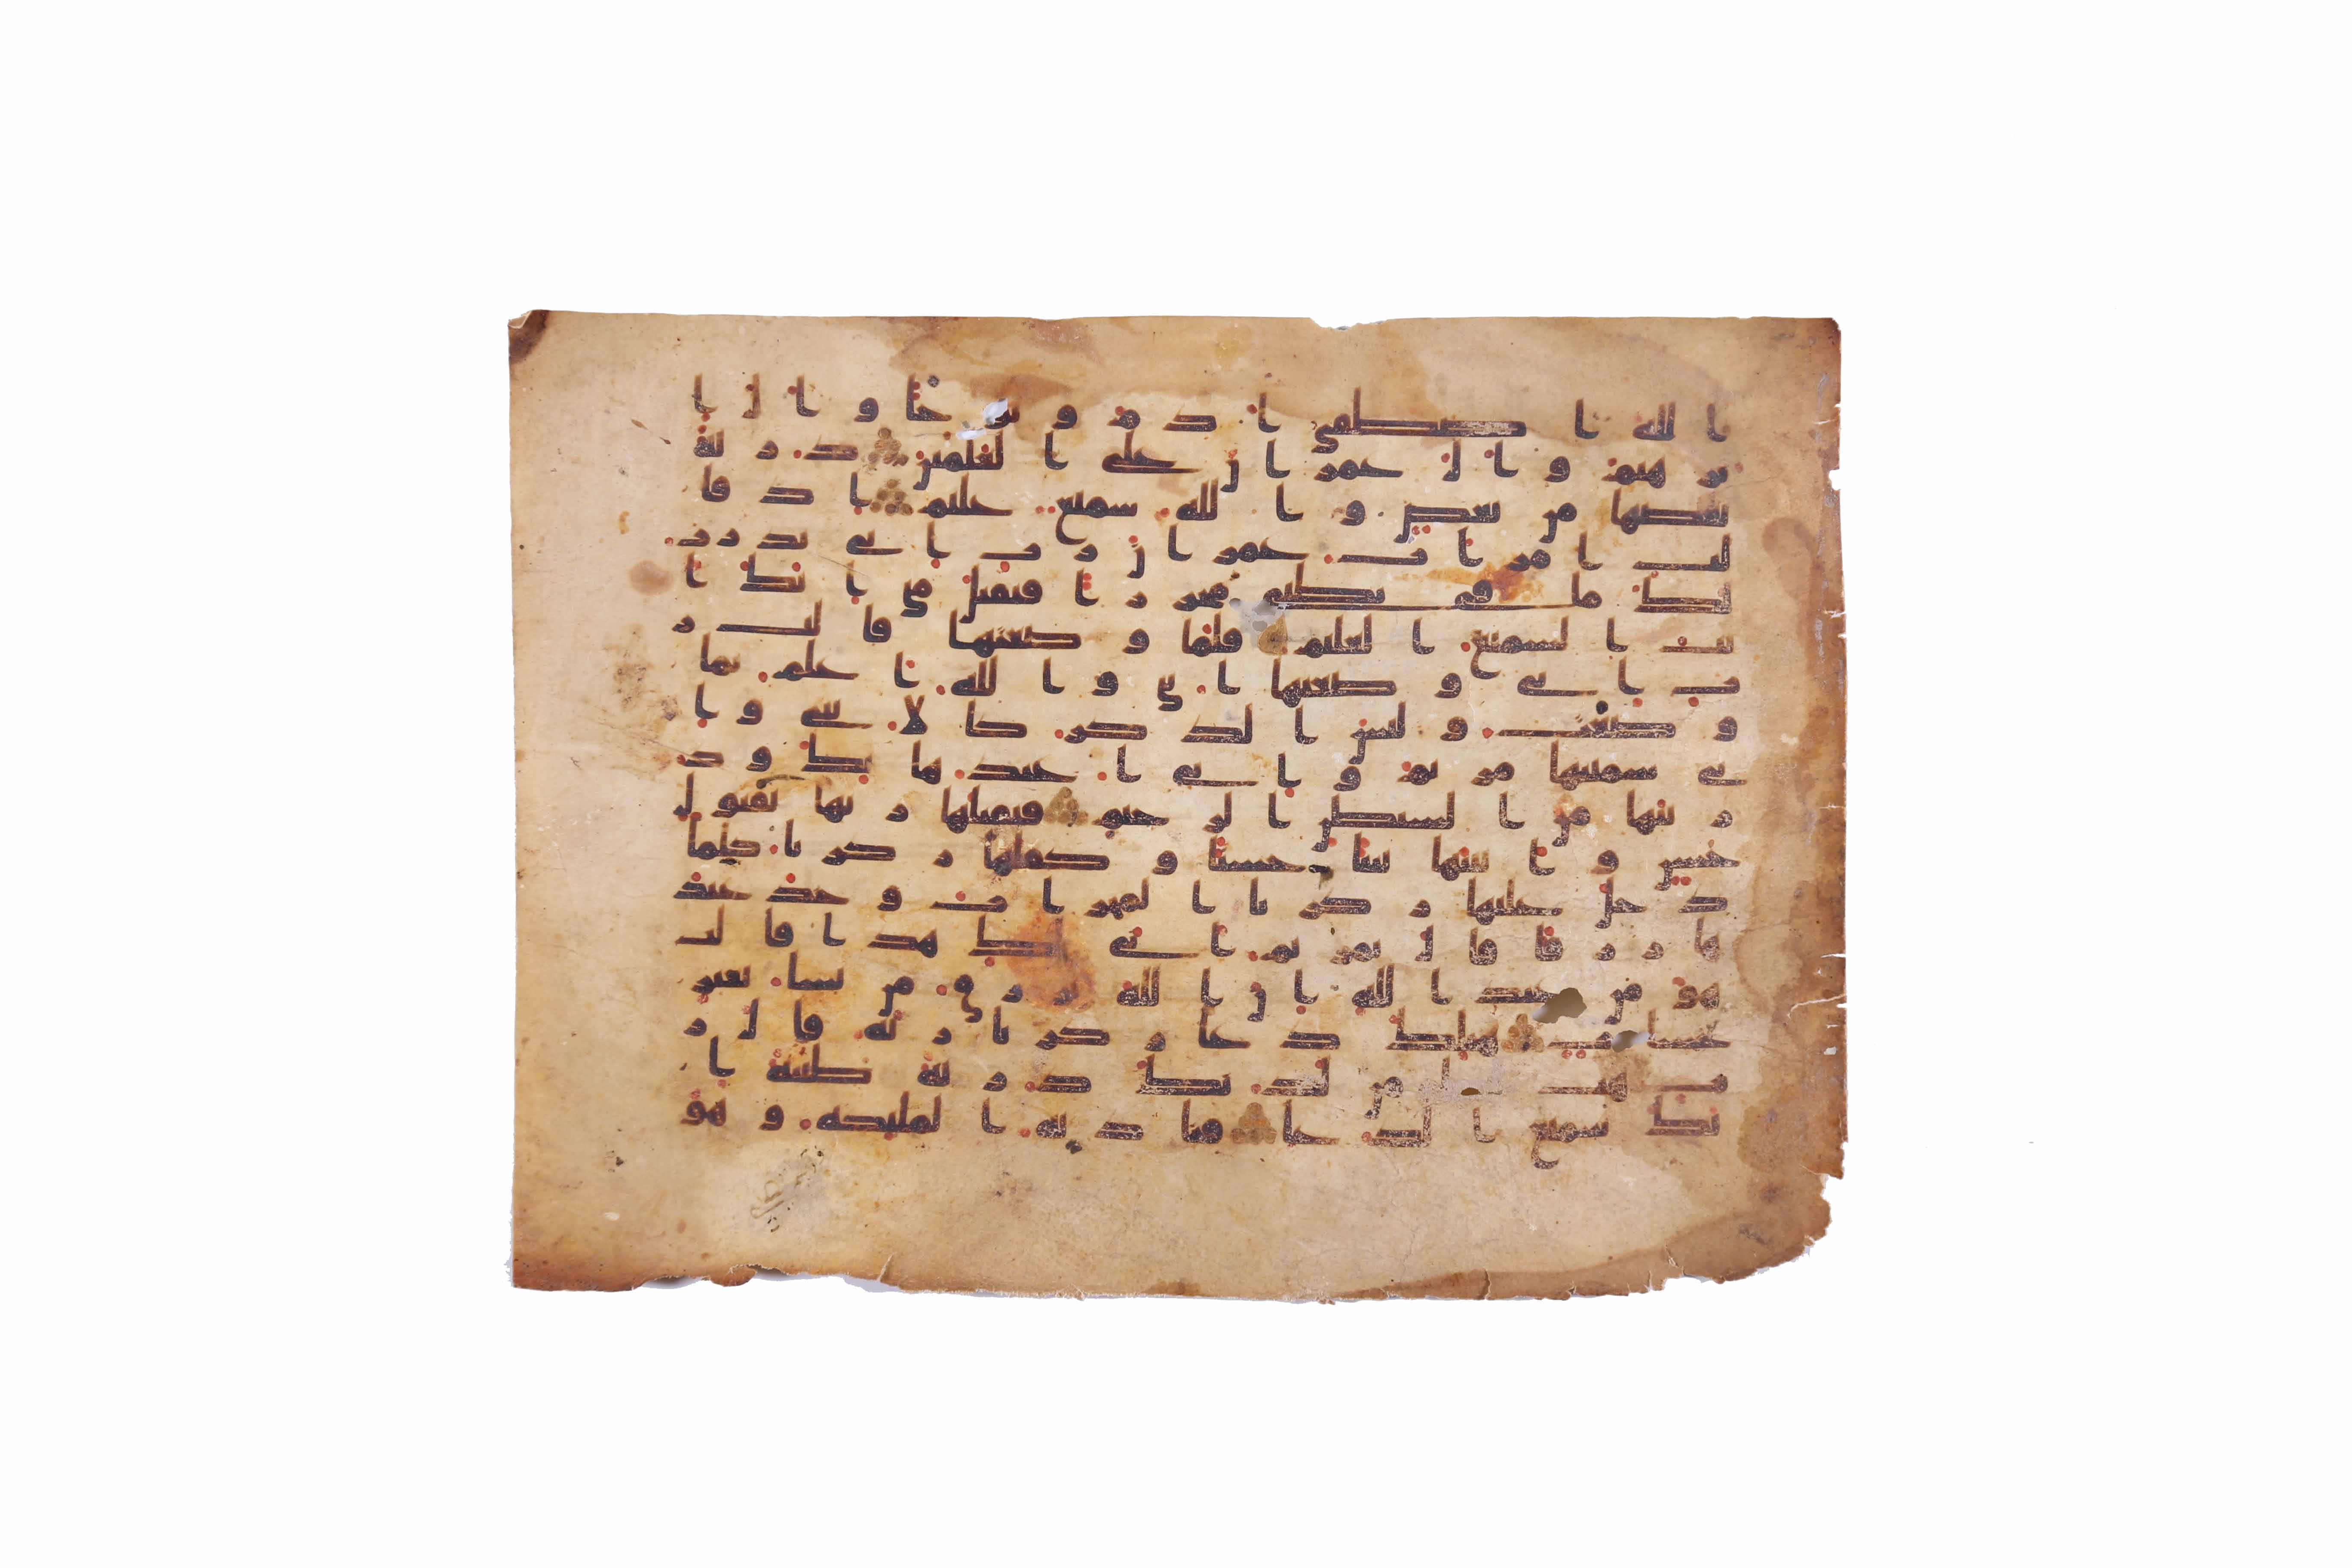 الله اصطفى ادم ونوحا وال ا
برهيم وال عمرن على العلمين ذرية
بعضها من بعض والله سميع عليم اذ قا
لت امرات عمرن رب اني نذرت
لك ما في بطني محررا فتقبل مني انك ا
نت السميع العليم فلما وضعتها قالت ر
ب اني وضعتها انثى والله اعلم بما
وضعت وليس الذكر كالانثى وا
ني سميتها مريم واني اعيذها بك وذ
ريتها من الشيطن الرجيم فتقبلها ربها بقبول
حسن وانبتها نباتا حسنا وكفلها زكريا كلما
دخل عليها زكريا المحراب وجد عند
ها رزقا قال يمريم انى لك هذا قالت
هو من عند الله ان الله يرزق من يشا بغير
حساب هنالك دعا زكريا ربه قال ر
ب هب لي من لدنك ذرية طيبة ا
نك سميع الدعا فنادته الملئكة وهو